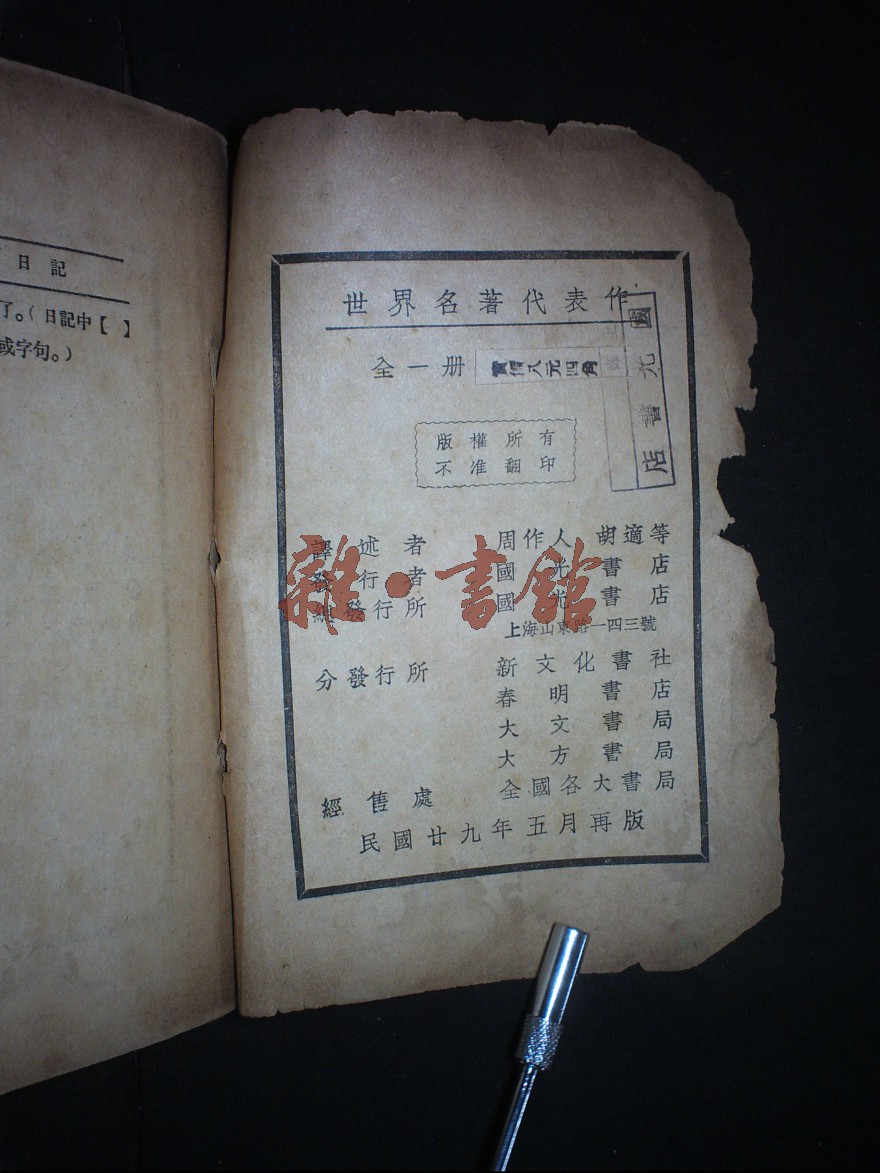 日記
了。(日記中【 】
或字句。)
世界名著代表作
全一册 實價八元四角
國光書店
版權所有
不准翻印
譯述者 周作人 胡適等
發行者 國光書店
總發行所 國光書店
上海山東路一四三號
分發行所 新文化書社
春明書店
大文書局
大方書局
經售處 全國各大書局
民國廿九年五月再版
雜·書館